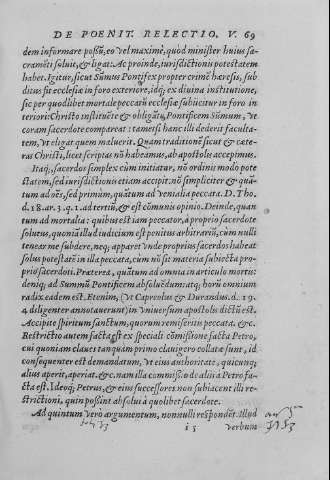 DE POENIT. RELECTIO. V. 69
dem informare possũ, eo vel maximè, quòd minister huius sa-
cramẽti soluit, & ligat: Ac proinde, iurisdictionis potestatem
habet. Igitur, sicut Sũmus Põtifex propter crimẽ hæresis, sub
ditus sit ecclesiæ in foro exteriore, idq; ex diuina institutione,
sic per quodlibet mortale peccatũ ecclesiæ subiicitur in foro in
teriori: Christo instituẽte & obligãte, Pontificem Sũmum, vt
coram sacerdote compareat: tametsi hanc illi dederit faculta-
tem, vt eligat quem maluerit. Quam traditionẽ sicut & cæte-
ras Christi, licet scriptas nõ habeamus, ab apostolis accepimus.
Itaq; sacerdos simplex cùm initiatur, nõ ordinis modo pote
statem, sed iurisdictionis etiam accipit, nõ simpliciter & quã-
tum ad oẽs, sed primùm, quãtum ad venialia peccata. D. Tho.
d. 18. ar. 3. q. 1. ad tertiũ, & est cõmunis opinio. Deinde, quan-
tum ad mortalia: quibus est iam peccator, à proprio sacerdote
solutus, quoniã illud iudicium est penitus arbitrariũ, cum nulli
teneatur me subdere, neq; apparet vnde proprius sacerdos habeat
solus potestatẽ in illa peccata, cùm nõ sit materia subiecta pro-
prio sacerdoti. Præterea, quãtum ad omnia in articulo mortis:
deniq; ad Summũ Pontificem absoluẽdum: atq; horũ omnium
radix eadem est. Etenim, (vt Capreolus & Durandus. d. 19.
4 diligenter annotauerunt) in vniuersum apostolis dictũ est.
Accipite spiritum sanctum, quorum remiseritis peccata. &c.
Restrictio autem facta est ex speciali cõmissione facta Petro,
cui quoniam claues tanquam primo clauigero collatæ sunt, id
consequenter est demandatum, vt eius authoritate, quicunq;
alius aperit, aperiat. &c. nam illa commissio de aliis à Petro fa-
cta est. Ideoq; Petrus, & eius successores non subiacent illi re-
strictioni, quin possint absolui à quolibet sacerdote.
Ad quintum vero argumentum, nonnulli respõdẽt. Illud
i 5 verbum